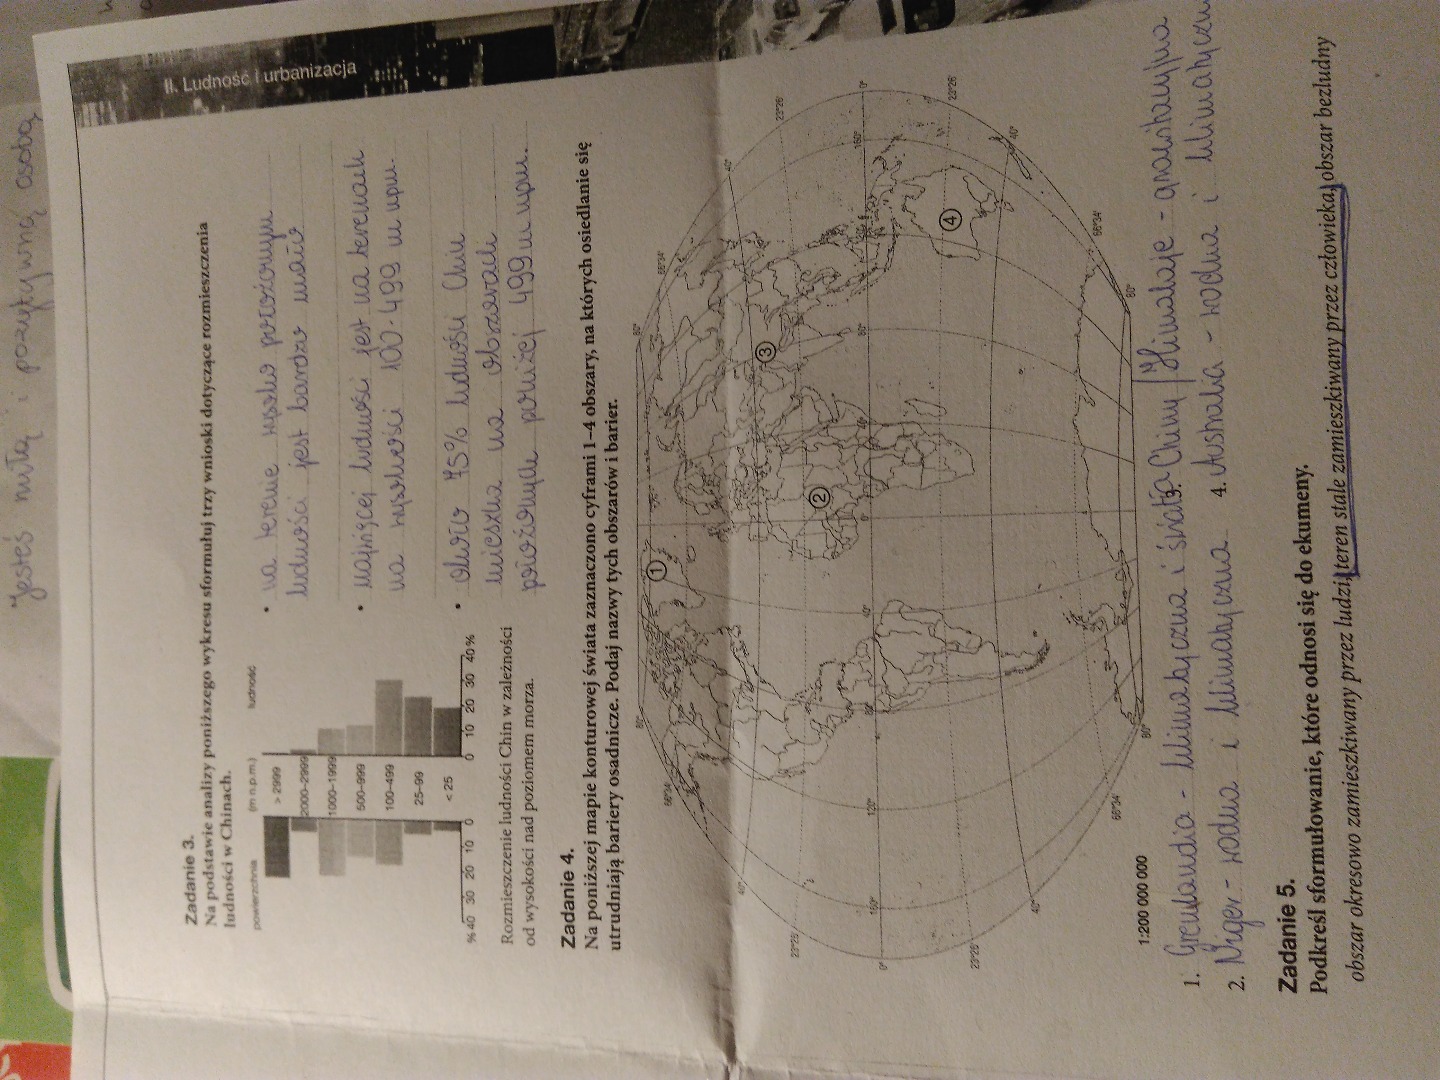 Jesteś miłą i pozytywną osobą
II. Ludność i urbanizacja
Zadanie 3.
Na podstawie analizy poniższego wykresu sformułuj trzy wnioski dotyczące rozmieszczenia
ludności w Chinach.
powierzchnia (m n.p.m.) ludność
> 2999
2000–2999
1000–1999
500–999
100–499
25–99
< 25
% 40 30 20 10 0 0 10 20 30 40 %
Rozmieszczenie ludności Chin w zależności
od wysokości nad poziomem morza.
• na terenie wysoko położonym
ludności jest bardzo mało
• najwięcej ludności jest na terenach
na wysokości 100-499 m npm.
• około 75% ludności Chin
mieszka na obszarach
położonych poniżej 499 m npm.
Zadanie 4.
Na poniższej mapie konturowej świata zaznaczono cyframi 1–4 obszary, na których osiedlanie się
utrudniają bariery osadnicze. Podaj nazwy tych obszarów i barier.
80° 80°
66°34' 66°34'
40° 40°
23°26' 23°26'
0° 160° 120° 80° 40° 0° 40° 80° 120° 160° 0°
23°26' 23°26'
40° 40°
66°34' 66°34'
80° 80°
1
2
3
4
1:200 000 000
1. Grenlandia - klimatyczna i świetlna
3. Chiny/Himalaje - grawitacyjna
2. Niger - wodna i klimatyczna
4. Australia - wodna i klimatyczna
Zadanie 5.
Podkreśl sformułowanie, które odnosi się do ekumeny.
obszar okresowo zamieszkiwany przez ludzi, teren stale zamieszkiwany przez człowieka, obszar bezludny